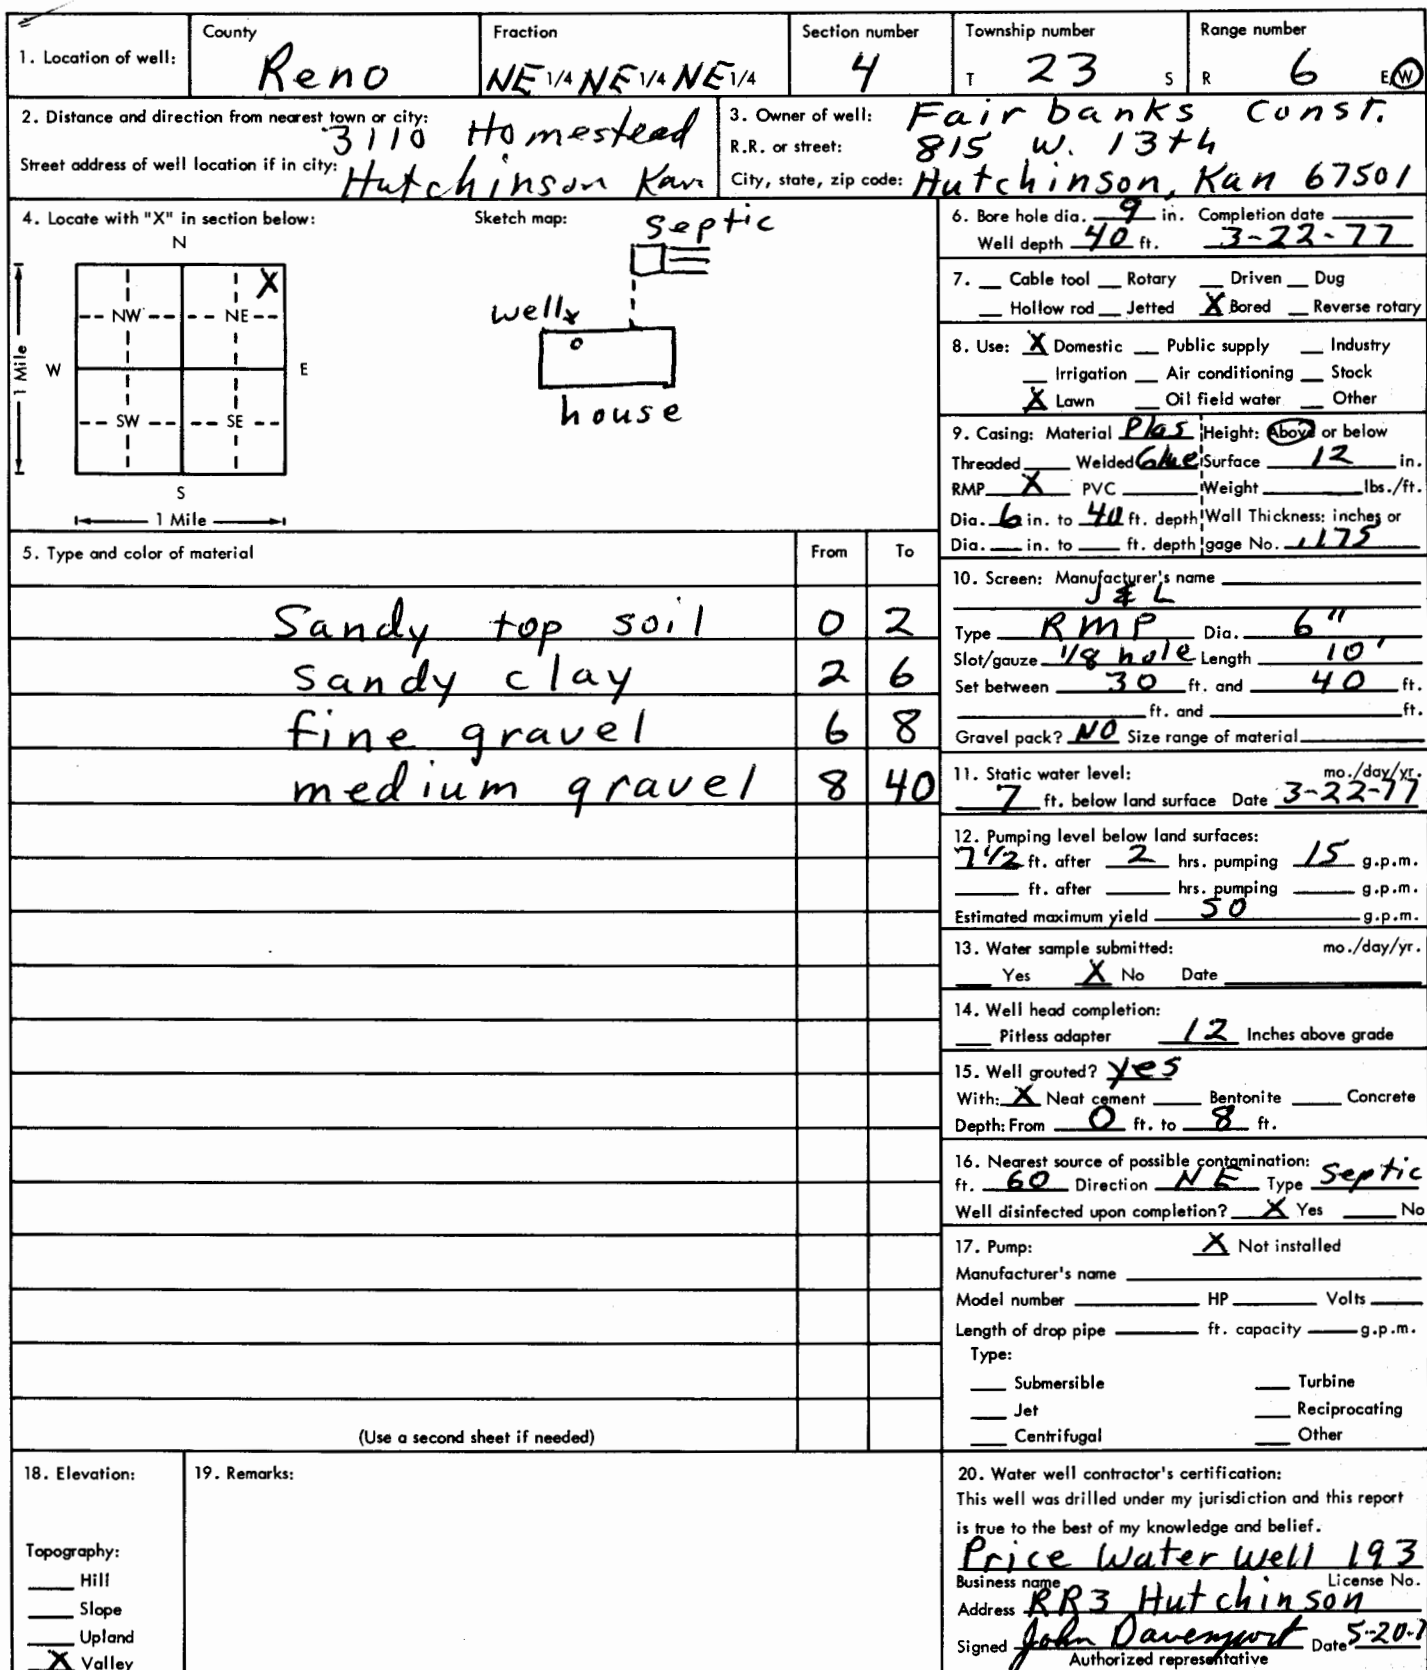 1. Location of well: County Reno Fraction NE 1/4 NE 1/4 NE 1/4 Section number 4 Township number T 23 S Range number R 6 E/W
2. Distance and direction from nearest town or city: 3110 Homestead
Street address of well location if in city: Hutchinson Kan
3. Owner of well: Fairbanks Const.
R.R. or street: 815 W. 13th
City, state, zip code: Hutchinson, Kan 67501
4. Locate with "X" in section below:
N
X
NW NE
W E
SW SE
S
1 Mile
1 Mile
Sketch map:
septic
well x
house
5. Type and color of material From To
Sandy top soil 0 2
sandy clay 2 6
fine gravel 6 8
medium gravel 8 40
(Use a second sheet if needed)
6. Bore hole dia. 9 in. Completion date
Well depth 40 ft. 3-22-77
7. __ Cable tool __ Rotary __ Driven __ Dug
__ Hollow rod __ Jetted X Bored __ Reverse rotary
8. Use: X Domestic __ Public supply __ Industry
__ Irrigation __ Air conditioning __ Stock
X Lawn __ Oil field water __ Other
9. Casing: Material Plas Height: Above or below
Threaded __ Welded Glue Surface 12 in.
RMP X PVC __ Weight __ lbs./ft.
Dia. 6 in. to 40 ft. depth Wall Thickness: inches or
Dia. __ in. to __ ft. depth gage No. .175
10. Screen: Manufacturer's name
J & L
Type RMP Dia. 6"
Slot/gauze 1/8 hole Length 10'
Set between 30 ft. and 40 ft.
__ ft. and __ ft.
Gravel pack? NO Size range of material
11. Static water level: mo./day/yr.
7 ft. below land surface Date 3-22-77
12. Pumping level below land surfaces:
7 1/2 ft. after 2 hrs. pumping 15 g.p.m.
__ ft. after __ hrs. pumping __ g.p.m.
Estimated maximum yield 50 g.p.m.
13. Water sample submitted: mo./day/yr.
__ Yes X No Date
14. Well head completion:
__ Pitless adapter 12 Inches above grade
15. Well grouted? yes
With: X Neat cement __ Bentonite __ Concrete
Depth: From 0 ft. to 8 ft.
16. Nearest source of possible contamination:
ft. 60 Direction NE Type Septic
Well disinfected upon completion? X Yes __ No
17. Pump: X Not installed
Manufacturer's name
Model number __ HP __ Volts __
Length of drop pipe __ ft. capacity __ g.p.m.
Type:
__ Submersible __ Turbine
__ Jet __ Reciprocating
__ Centrifugal __ Other
18. Elevation:
Topography:
__ Hill
__ Slope
__ Upland
X Valley
19. Remarks:
20. Water well contractor's certification:
This well was drilled under my jurisdiction and this report
is true to the best of my knowledge and belief.
Price Water Well 193
Business name License No.
Address RR3 Hutchinson
Signed John Davenport Date 5-20-7
Authorized representative